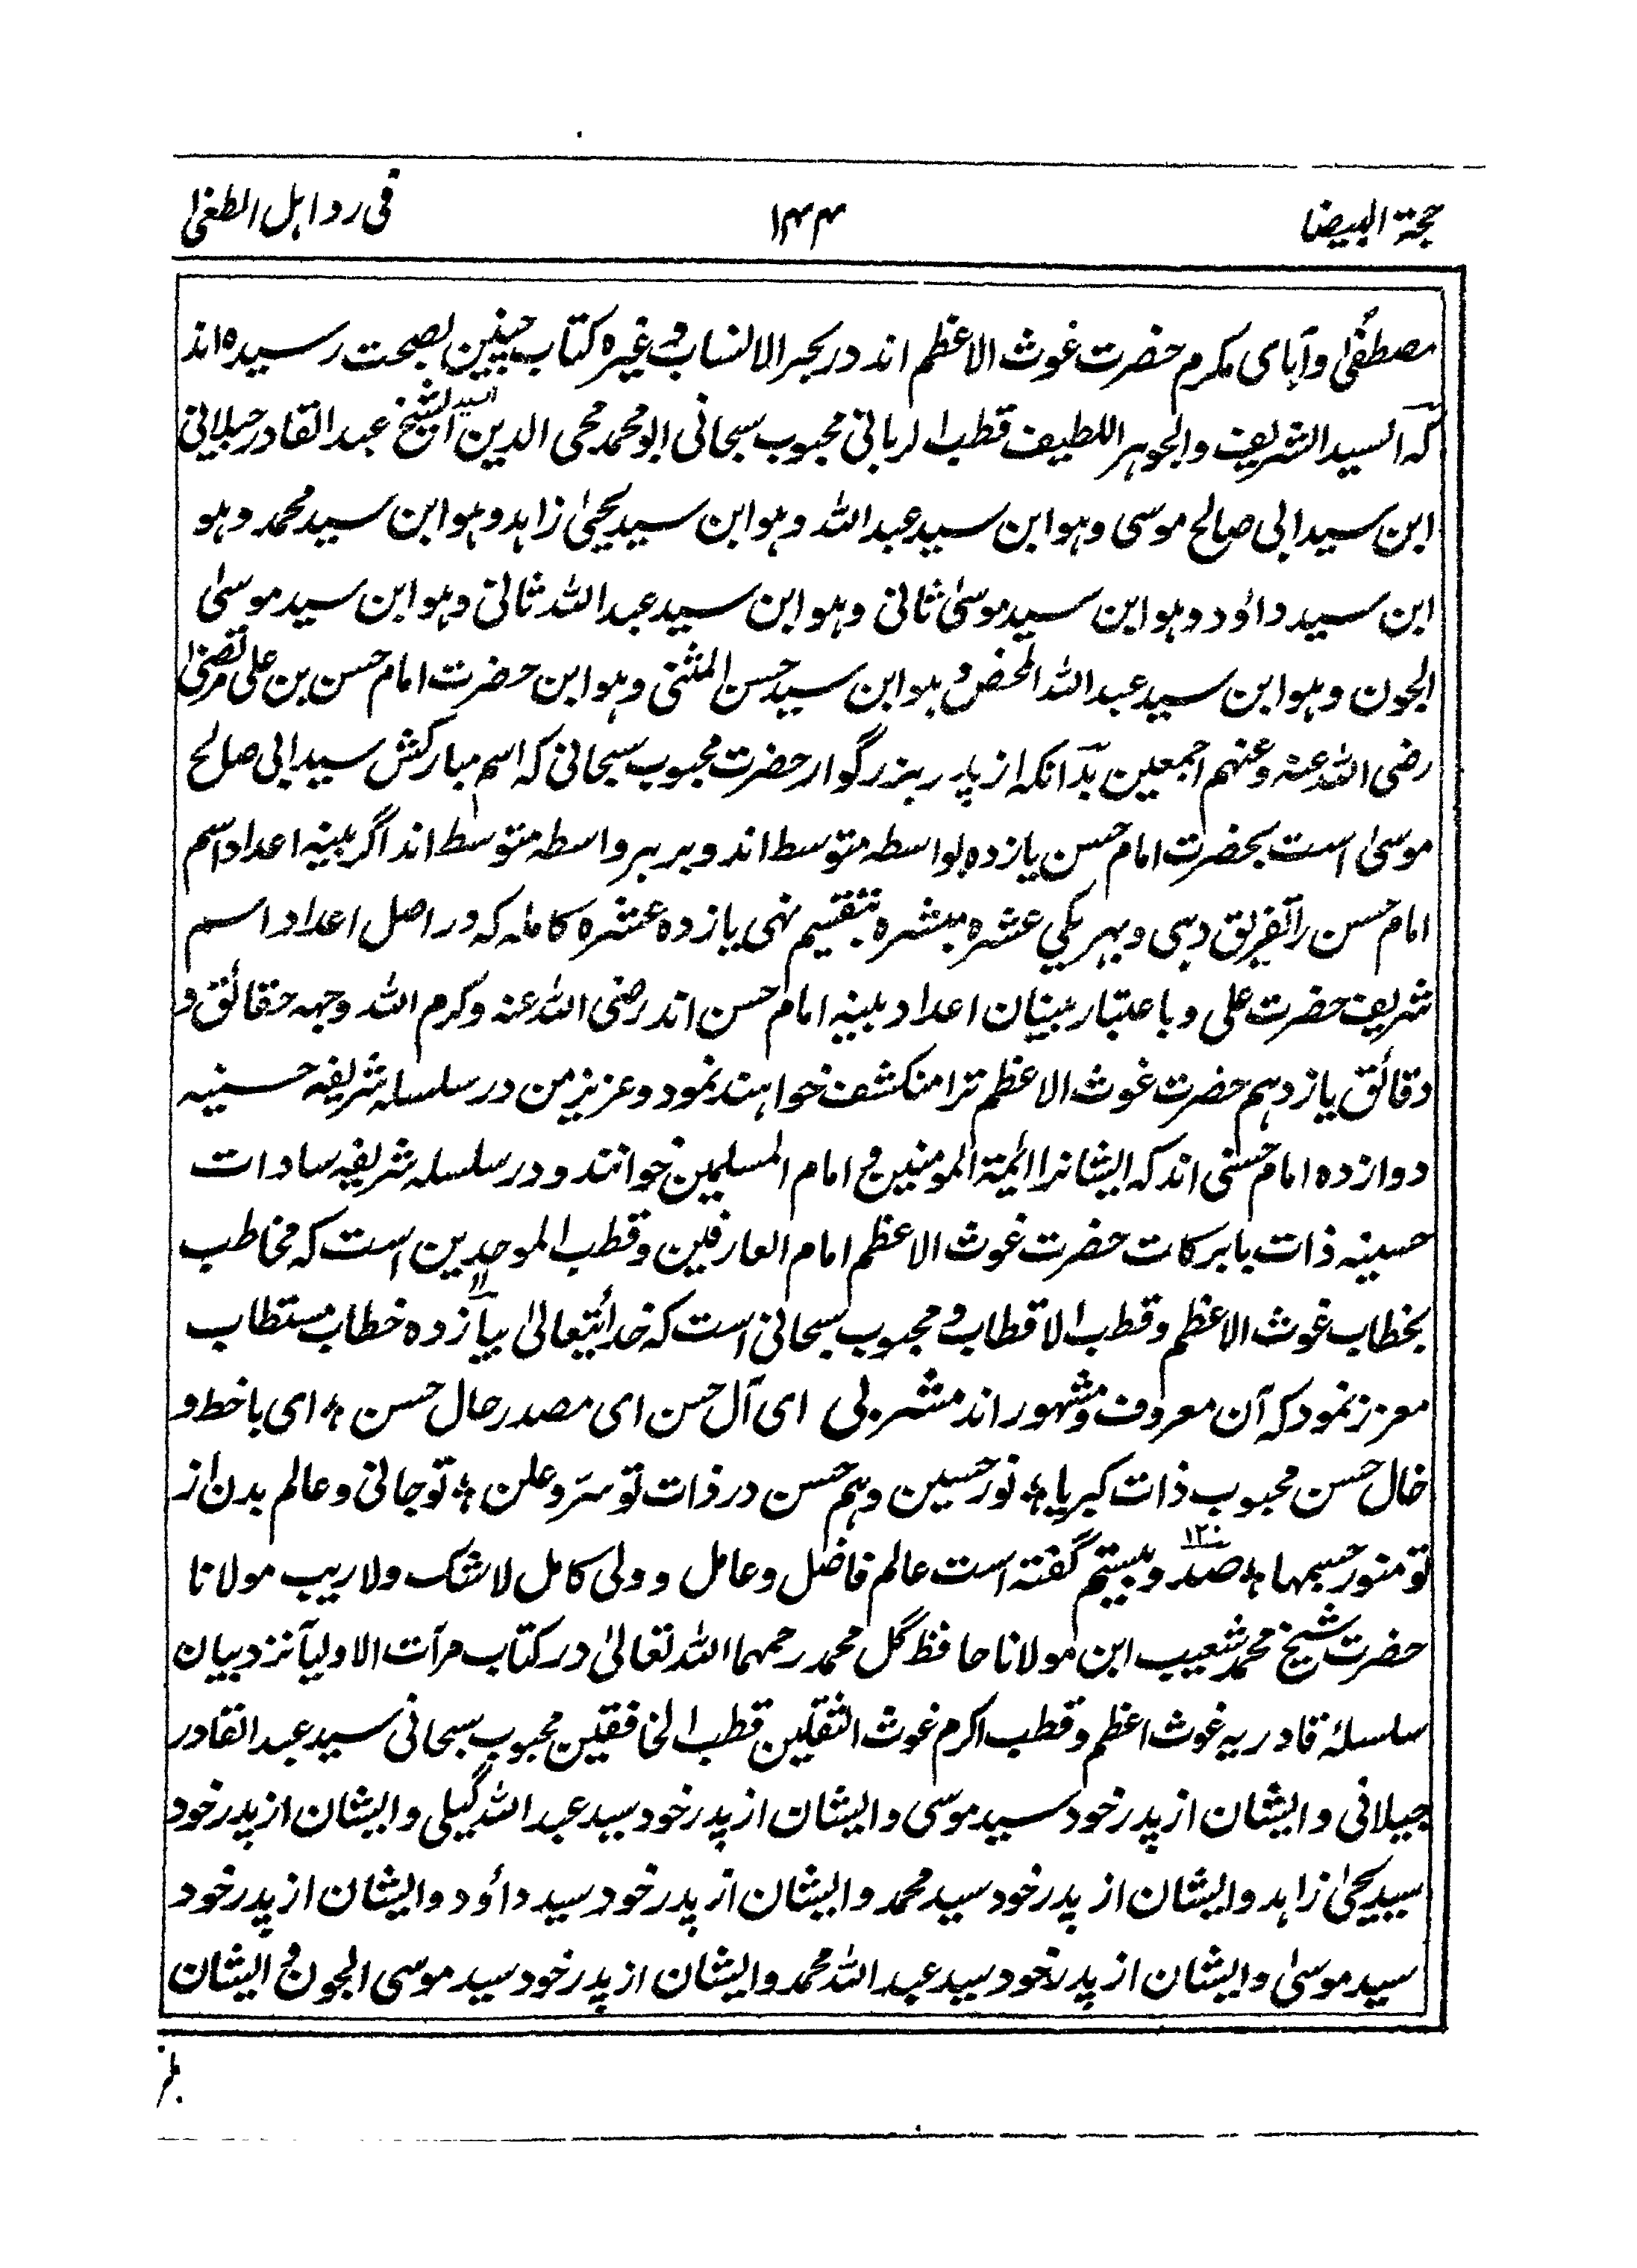 حجة البیضا ۱۴۴ فی رد اہل الطغیٰ
مصطفیٰ و آبای مکرم حضرت غوث الاعظم اند در بحر الانساب و غیرہ کتاب چنین بصحت رسیدہ اند
کہ السید الشریف والجوہر اللطیف قطب الربانی محبوب سبحانی ابو محمد محی الدین السید الشیخ عبد القادر جیلانی
ابن سید ابی صالح موسی وہو ابن سید عبد اللہ وہو ابن سید یحییٰ زاہد وہو ابن سید محمد وہو
ابن سید داؤد وہو ابن سید موسیٰ ثانی وہو ابن سید عبد اللہ ثانی وہو ابن سید موسیٰ
الجون وہو ابن سید عبد اللہ المحض وہو ابن سید حسن المثنی وہو ابن حضرت امام حسن بن علی مرتضیٰ
رضی اللہ عنہ وعنہم اجمعین بدانکہ از پدر بزرگوار حضرت محبوب سبحانی کہ اسم مبارکش سید ابی صالح
موسیٰ است بحضرت امام حسن یازدہ بواسطہ متوسط اند و بر ہر واسطہ متوسط اند اگر بینہ اعداد اسم
امام حسن را تفریق دہی و بہر یکی عشرہ مبشرہ بتقسیم نہی یازدہ عشرہ کاملہ کہ در اصل اعداد اسم
شریف حضرت علی و باعتبار بینیان اعداد بینہ امام حسن اند رضی اللہ عنہ وکرم اللہ وجہہ حقائق و
دقائق یازدہم حضرت غوث الاعظم ترا منکشف خواہند نمود و عزیز من در سلسلہ شریفہ حسینیہ
دوازدہ امام حسنی اند کہ ایشانرا ائمۃ المومنین و امام المسلمین خوانند و در سلسلہ شریفہ سادات
حسینہ ذات بابرکات حضرت غوث الاعظم امام العارفین و قطب الموحدین است کہ مخاطب
بخطاب غوث الاعظم و قطب الاقطاب و محبوب سبحانی است کہ خدایتعالیٰ بیازدہ ۱۱ خطاب مستطاب
معزز نمود کہ آن معروف و مشہور اند مشربی ای آل حسن ای مصدر حال حسن ؛ ای باخط و
خال حسن محبوب ذات کبریا ؛ نور حسین وہم حسن در ذات تو سرّ و علن ؛ تو جانی و عالم بدن از
تو منور جسمہا ؛ صد و بیستم ۱۲۰ گفتہ است عالم فاضل و عامل و ولی کامل لاشک ولا ریب مولانا
حضرت شیخ محمد شعیب ابن مولانا حافظ گل محمد رحمہما اللہ تعالیٰ در کتاب مرآت الاولیآ نزد بیان
سلسلۂ قادریہ غوث اعظم و قطب اکرم غوث الثقلین قطب الخافقین محبوب سبحانی سید عبد القادر
جیلانی و ایشان از پدر خود سید موسی و ایشان از پدر خود سید عبد اللہ گیلی و ایشان از پدر خود
سید یحییٰ زاہد و ایشان از پدر خود سید محمد و ایشان از پدر خود سید داؤد و ایشان از پدر خود
سید موسیٰ و ایشان از پدر خود سید عبد اللہ محمد و ایشان از پدر خود سید موسی الجون و ایشان